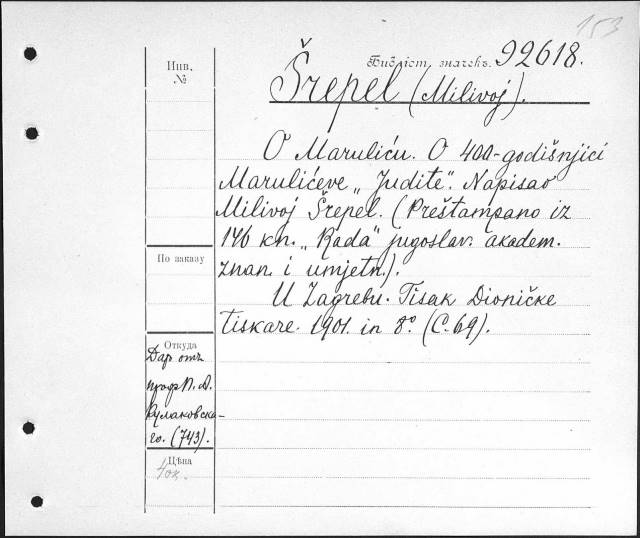 153
Библіот. значекъ. 92618.
Инв. №
Šrepel (Milivoj).
O Maruliću. O 400-godišnjici
Marulićeve „Judite". Napisao
Milivoj Šrepel. (Preštampano iz
146 kn. „Rada" jugoslav. akadem.
znan. i umjetn.).
U Zagrebu. Tisak Dioničke
tiskare. 1901. in 8° (C. 69).
По заказу
Откуда
Даръ отъ
проф. П. А.
Кулаковска-
го. (743).
Цѣна
40к.